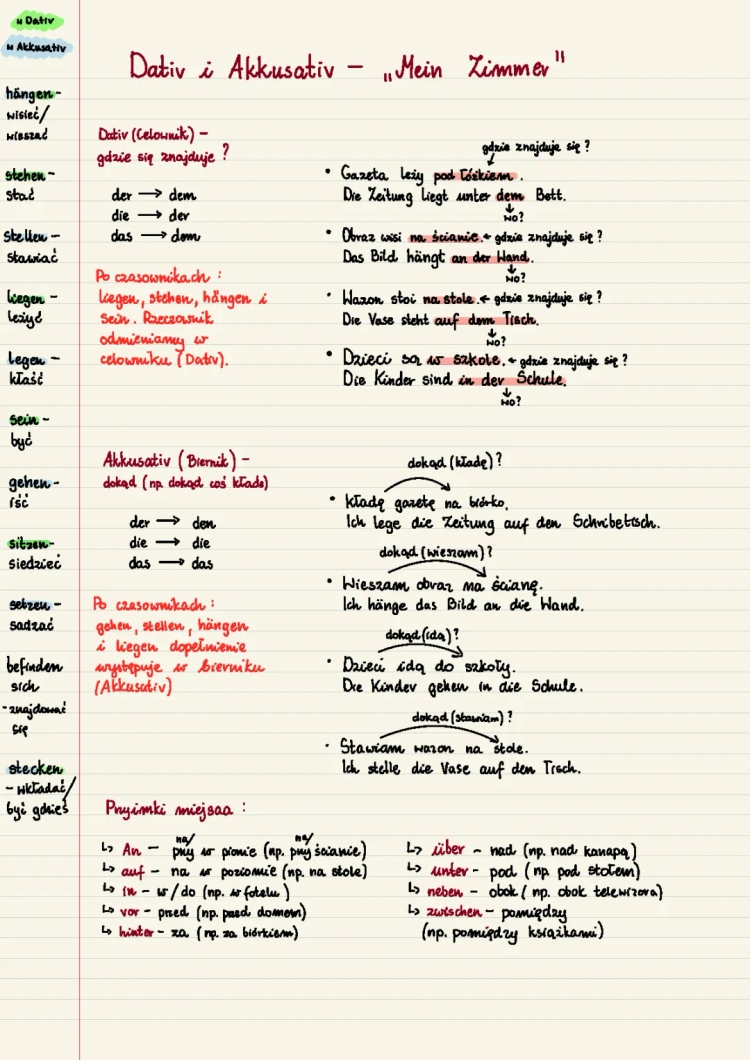 w Dativ
w Akkusativ
hängen -
wisieć/
wieszać
stehen -
stać
stellen -
stawiać
liegen -
leżyć
legen -
kłaść
sein -
być
gehen -
iść
sitzen -
siedzieć
setzen -
sadzać
befinden
sich
- znajdować
się
stecken
- wkładać/
być gdzieś
Dativ i Akkusativ - „Mein Zimmer"
Dativ (Celownik) -
gdzie się znajduje ?
der → dem
die → der
das → dem
Po czasownikach :
liegen, stehen, hängen i
sein. Rzeczownik
odmieniamy w
celowniku (Dativ).
gdzie znajduje się ?
• Gazeta leży pod łóżkiem.
Die Zeitung liegt unter dem Bett.
wo?
• Obraz wisi na ścianie. ← gdzie znajduje się ?
Das Bild hängt an der Wand.
wo?
• Wazon stoi na stole. ← gdzie znajduje się ?
Die Vase steht auf dem Tisch.
wo?
• Dzieci są w szkole. ← gdzie znajduje się ?
Die Kinder sind in der Schule.
wo?
Akkusativ (Biernik) -
dokąd (np. dokąd coś kładę)
der → den
die → die
das → das
Po czasownikach :
gehen, stellen, hängen
i liegen dopełnienie
występuje w bierniku
(Akkusativ)
dokąd (kładę) ?
• Kładę gazetę na biórko.
Ich lege die Zeitung auf den Schribetisch.
dokąd (wieszam) ?
• Wieszam obraz na ścianę.
Ich hänge das Bild an die Wand.
dokąd (idą) ?
• Dzieci idą do szkoły.
Die Kinder gehen in die Schule.
dokąd (stawiam) ?
• Stawiam wazon na stole.
Ich stelle die Vase auf den Tisch.
Przyimki miejsca :
↳ An - na/przy w pionie (np. na/przy ścianie)
↳ auf - na w poziomie (np. na stole)
↳ in - w/do (np. w fotelu)
↳ vor - przed (np. przed domem)
↳ hinter - za (np. za biórkiem)
↳ über - nad (np. nad kanapą)
↳ unter - pod (np. pod stołem)
↳ neben - obok (np. obok telewizora)
↳ zwischen - pomiędzy
(np. pomiędzy książkami)